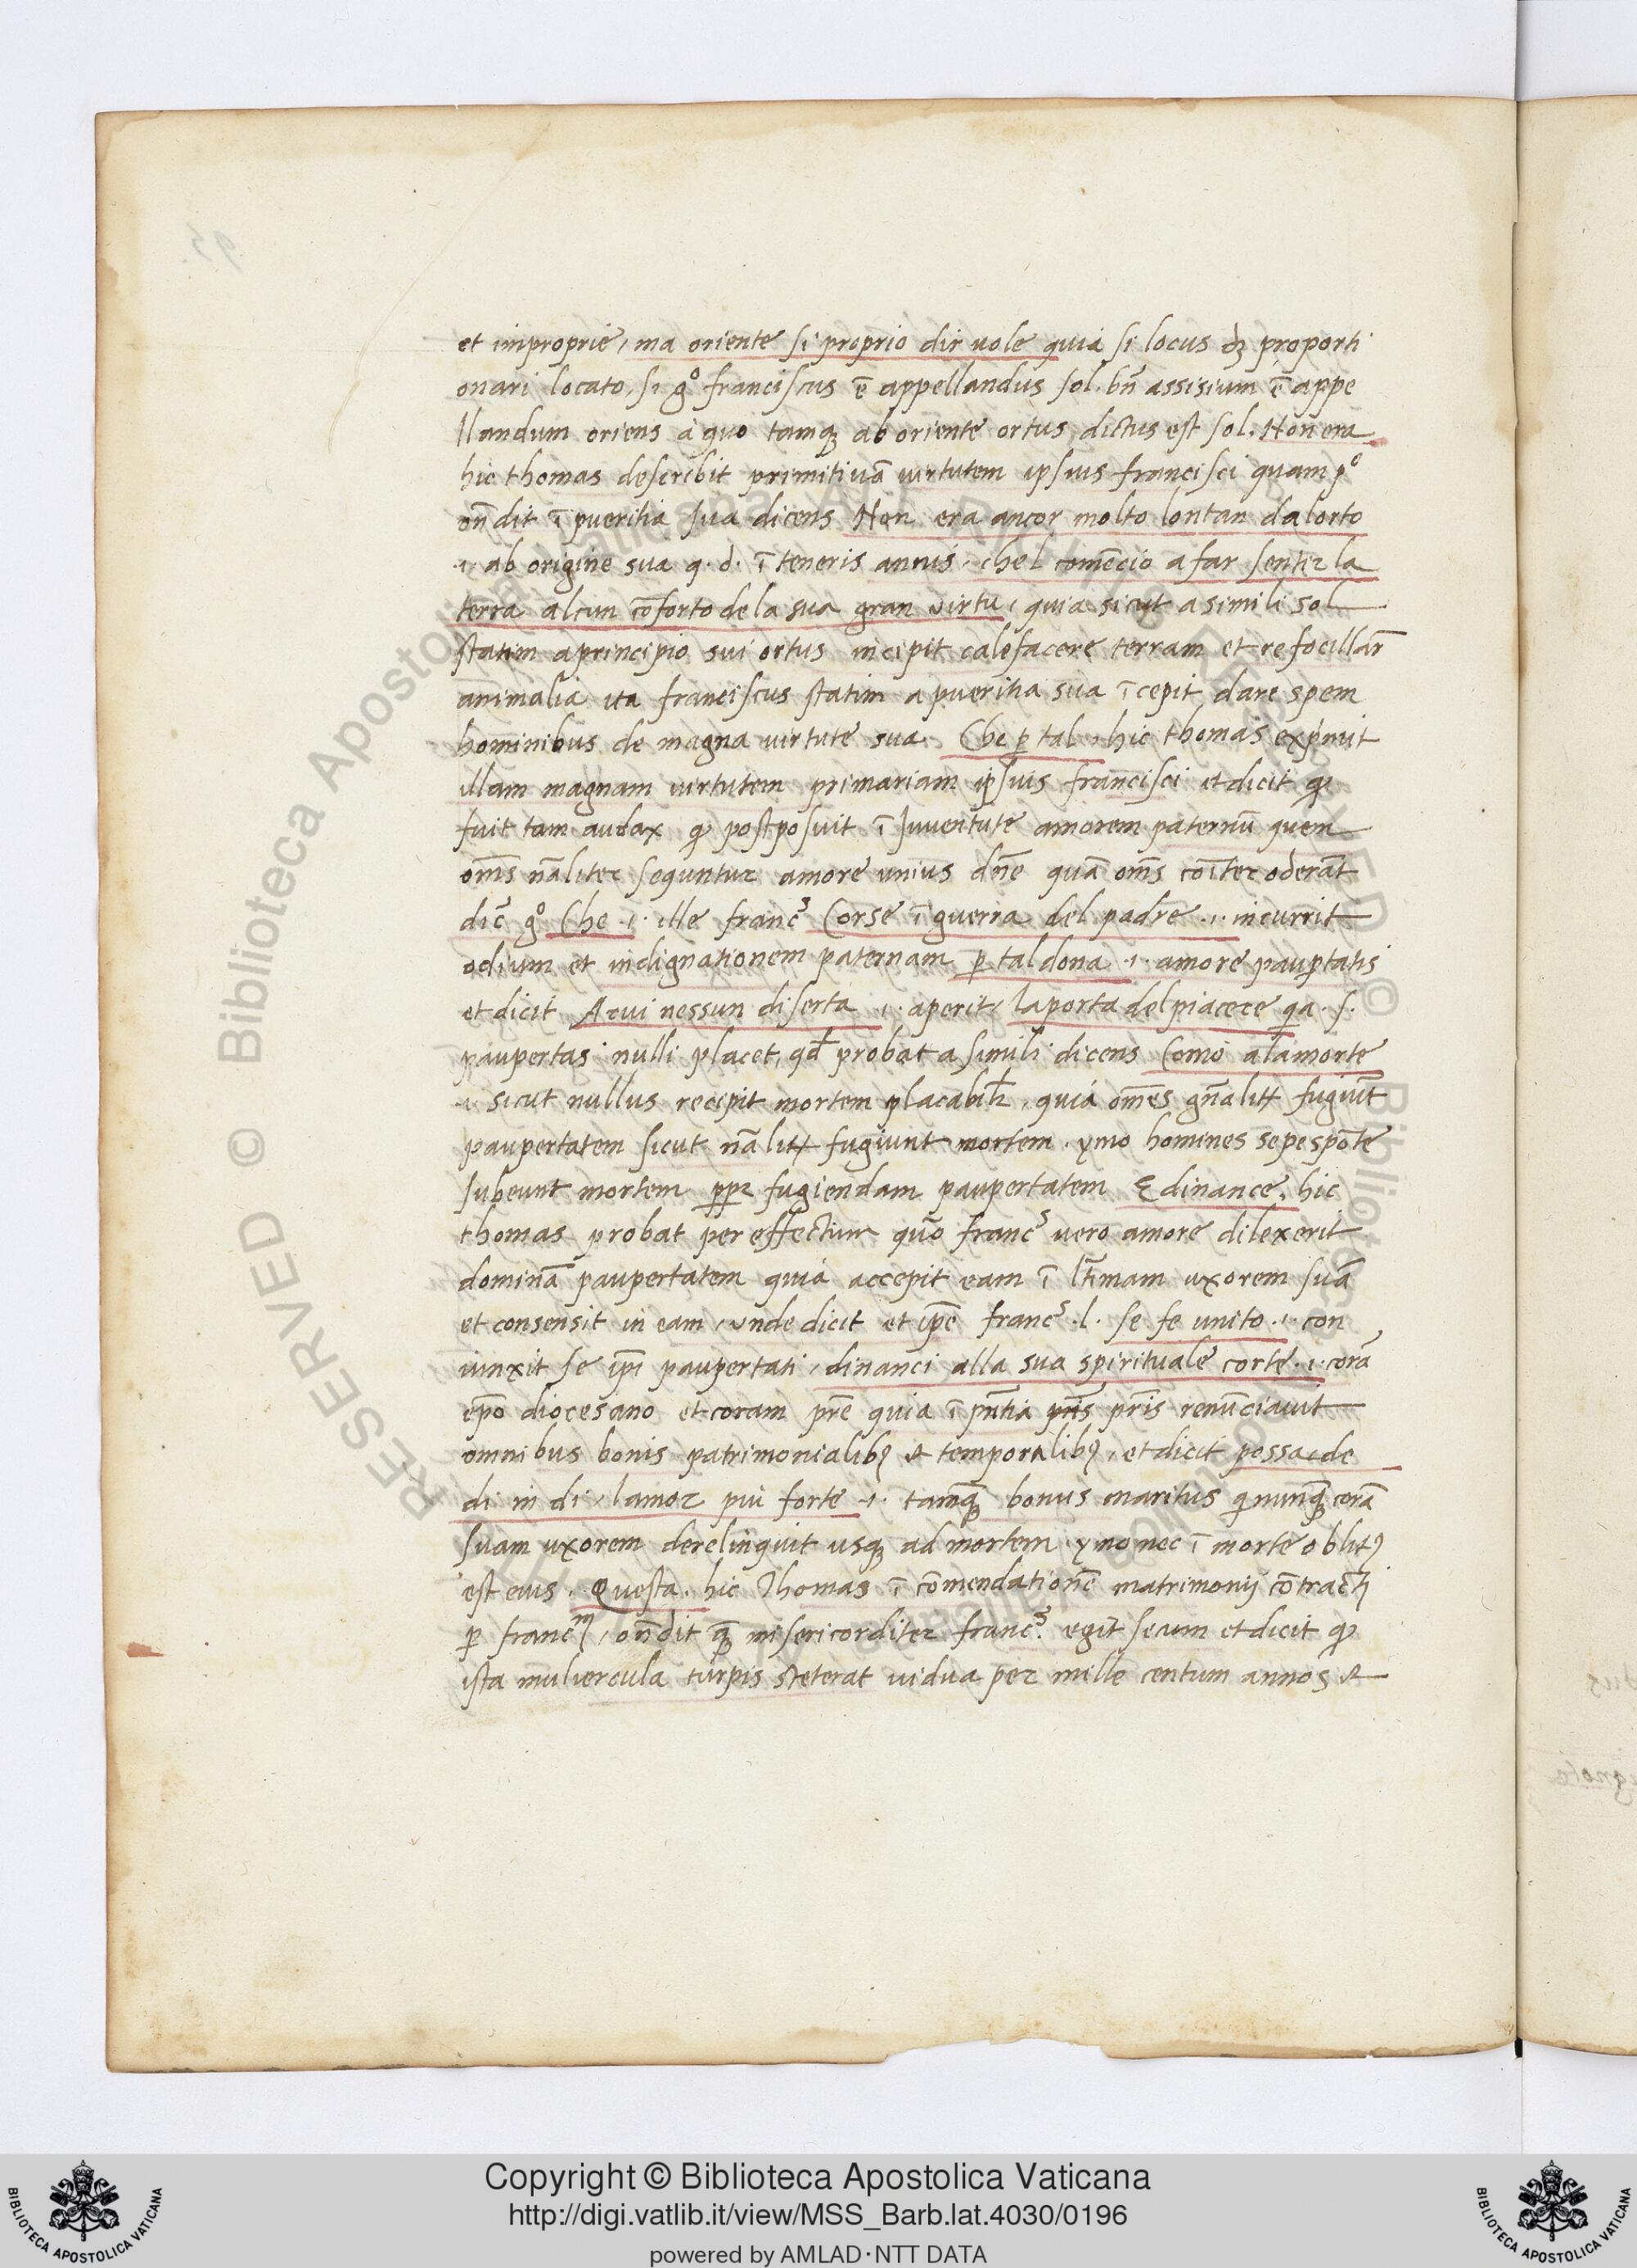 et improprie, ma oriente si proprio dir uole quia si locus dꝫ proporti
onari locato, si gº franciscus ē appellandus sol. bn̄ assisium ē appe
llandum oriens à quo tamqꝫ ab oriente ortus dictus est sol. Non era
hic thomas describit primitiuā uirtutem ipsius francisci quam pº
on̄dit ī pueritia sua dicens Non era ancor molto lontan dalorto
.i. ab origine sua q.d. ī teneris annis. chel comēcio a far sentir la
terra alcun cōforto de la sua gran virtu, quia sicut a simili sol
statim a principio sui ortus incipit calefacere terram et refocillar̄
animalia ita franciscus statim a pueritia sua īcepit dare spem
hominibus de magna uirtute sua. Che ꝑ tal. hic thomas exp̄mit
illam magnam uirtutem primariam ipsius francisci et dicit ꝙ
fuit tam audax ꝙ postposuit ī Juuentute amorem paternū quem
om̄s nāliter seguntur amore unius dn̄e quā om̄s cōiter oderāt
dic̄ gº Che .i. ille franc̓ Corse ī guerra del padre .i. incurrit
odium et indignationem paternam ꝑ tal dona .i. amore pauꝑtatis
et dicit Acui nessun diserra .i. aperit, la porta del piacere qa .s.
paupertas nulli placet, qđ probat a simili dicens Como alamorte
.i. sicut nullus recipit mortem placabilr̄, quia om̄es gn̄alitr fugiūt
paupertatem sicut nālitr fugiunt mortem. ymo homines sepe spōte
subeunt mortem ꝓpr fugiendam paupertatem E dinance, hic
thomas probat per effectum quō franc̓ uero amore dilexerit
dominā paupertatem quia accepit eam ī ltīmam uxorem suā
et consensit in eam, unde dicit et ip̄e franc̓ .l. se fe unito .i. con
iunxit se ip̄i paupertati, dinanci alla sua spirituale corte .i. corā
ep̄o diocesano et coram pr̄e quia ī pn̄tia pr̄is renūciauit
omnibus bonis patrimonialibꝰ et temporalibꝰ, et dicit possa de
di in di lamor piu forte .i. tamqꝫ bonus maritus qi nunqꝫ corā
suam uxorem derelinquit usqꝫ ad mortem ymo nec ī morte oblitꝰ
est eius. Questa. hic Thomas ī cōmendationē matrimonij cōtracti
ꝑ francm̄, on̄dit qꝫ misericorditer franc̓. egit secum et dicit ꝙ
ista muliercula turpis steterat uidua per mille centum annos et
Copyright © Biblioteca Apostolica Vaticana
http://digi.vatlib.it/view/MSS_Barb.lat.4030/0196
powered by AMLAD·NTT DATA